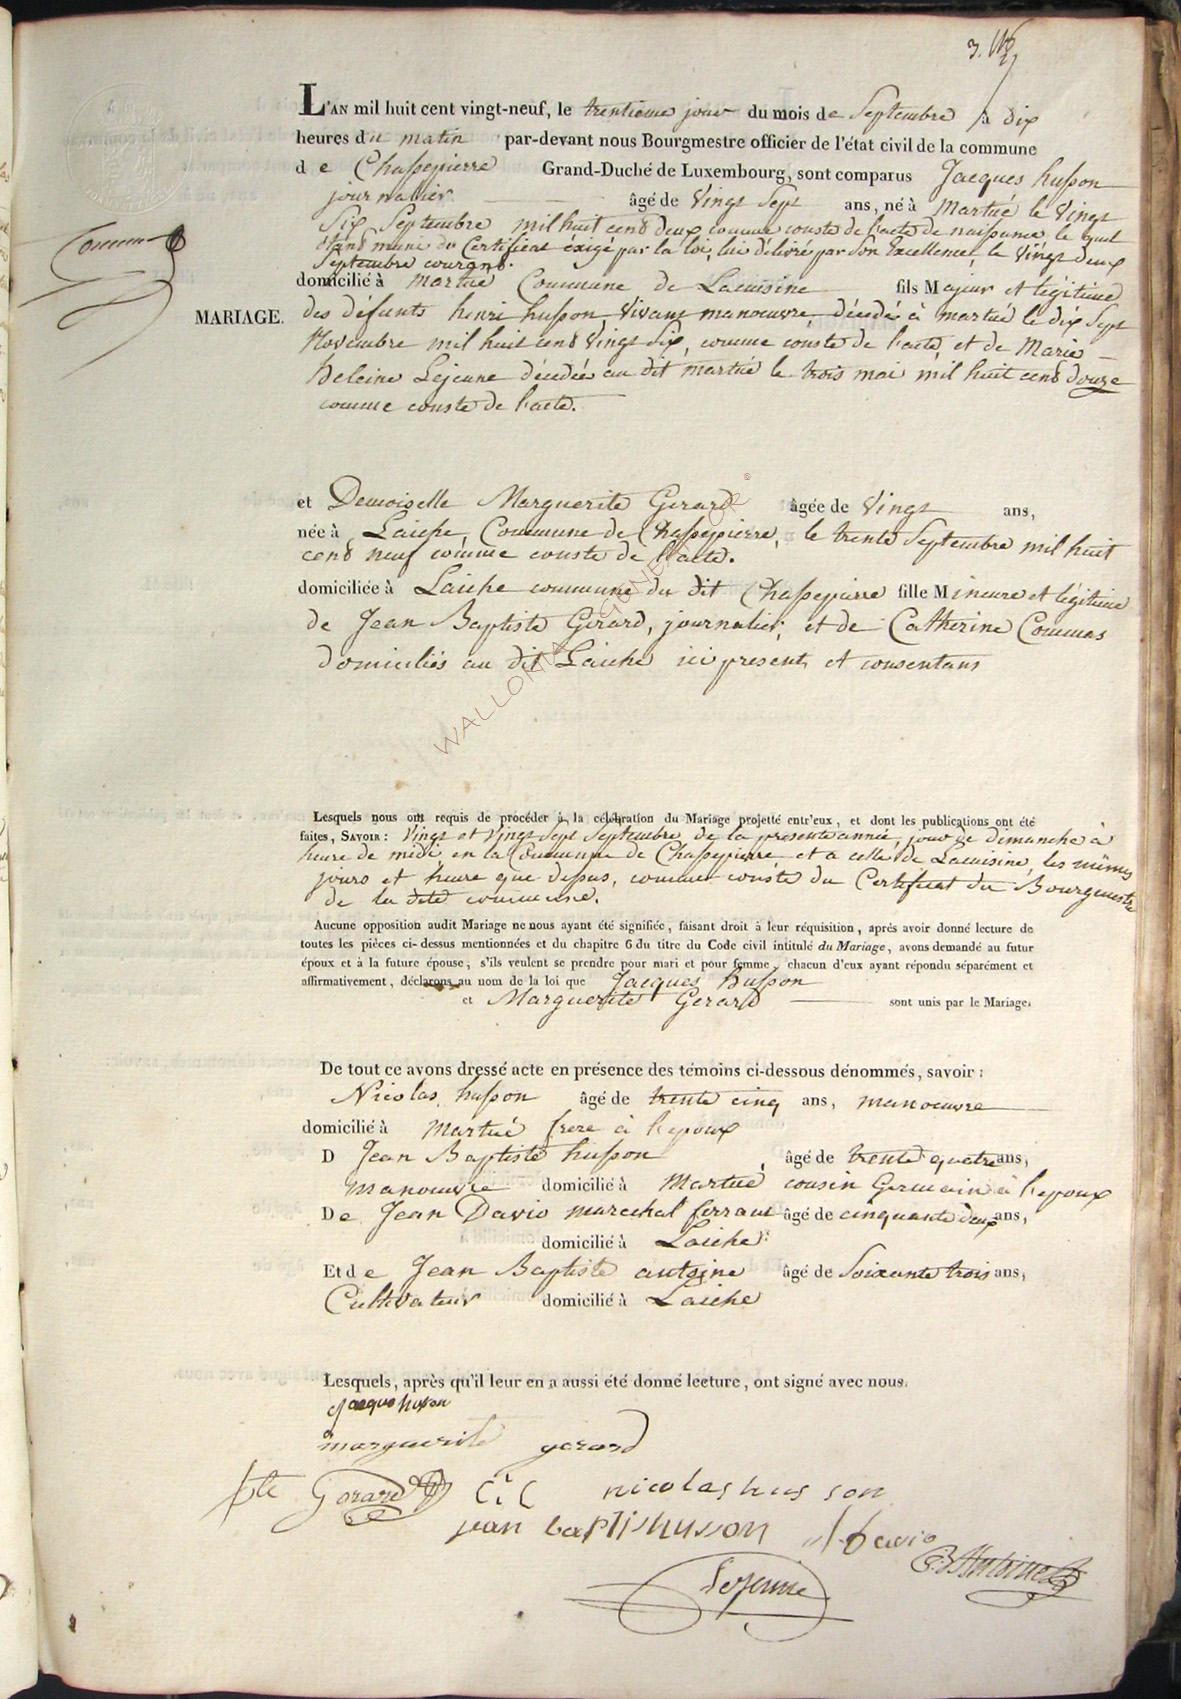 3.
L'AN mil huit cent vingt-neuf, le trentieme jour du mois de Septembre à dix
heures du matin par-devant nous Bourgmestre officier de l'état civil de la commune
de Chassepierre Grand-Duché de Luxembourg, sont comparus Jacques husson
journalier âgé de Vingt Sept ans, né à Martué le Vingt
Six Septembre mil huit cent deux comme conste de l'acte de naissance le quel
etant muni du Certificat éxigé par la loi, lui délivré par Son Excellence, le Vingt deux
Septembre courant.
domicilié à Martué Commune de Lacuisine fils Majeur et légitime
MARIAGE. des défunts henri husson, Vivant manoeuvre, décédé à martué le dix Sept
Novembre mil huit cent Vingt Six, comme conste de l'acte, et de Marie
heleine Lejeune décédée au dit martué le trois mai mil huit cent douze
comme conste de l'acte.
et Demoiselle Marguerite Gerard âgée de Vingt ans,
née à Laiche, Commune de Chassepierre, le trente Septembre mil huit
cent neuf comme conste de l'acte.
domiciliée à Laiche commune du dit Chassepierre fille Mineure et légitime
de Jean Baptiste Gerard, journalier, et de Catherine Commas
domiciliés au dit Laiche ici present et consentans
WALLONIA-GENE.ORG ©
Lesquels nous ont requis de procéder à la célébration du Mariage projetté entr'eux, et dont les publications ont été
faites, SAVOIR : Vingt et Vingt Sept Septembre de la presente année, jour de dimanche à
heure de midi en la Commune de Chassepierre et a celle de Lacuisine, les mêmes
jours et heure que dessus, comme conste du Certificat du Bourgmestre
de la dite commune.
Aucune opposition audit Mariage ne nous ayant été signifiée, faisant droit à leur réquisition, après avoir donné lecture de
toutes les pièces ci-dessus mentionnées et du chapitre 6 du titre du Code civil intitulé du Mariage, avons demandé au futur
époux et à la future épouse, s'ils veulent se prendre pour mari et pour femme, chacun d'eux ayant répondu séparément et
affirmativement, déclarons au nom de la loi que Jacques Husson
et Marguerite Gerard sont unis par le Mariage.
De tout ce avons dressé acte en présence des témoins ci-dessous dénommés, savoir :
Nicolas husson âgé de trente cinq ans, manoeuvre
domicilié à Martué frere à l'epoux
D Jean Baptiste husson, âgé de trente quatre ans,
manoeuvre domicilié à Martué cousin Germain à l'epoux
De Jean Davio marechal ferrant âgé de cinquante deux ans,
domicilié à Laiche
Et de Jean Baptiste antoine âgé de Soixante trois ans,
Cultivateur domicilié à Laiche
Lesquels, après qu'il leur en a aussi été donné lecture, ont signé avec nous.
Jacque husson
marguerite gerard
Gerard C C nicolas husson
jean baptis husson davio
Antoine
Lejeune